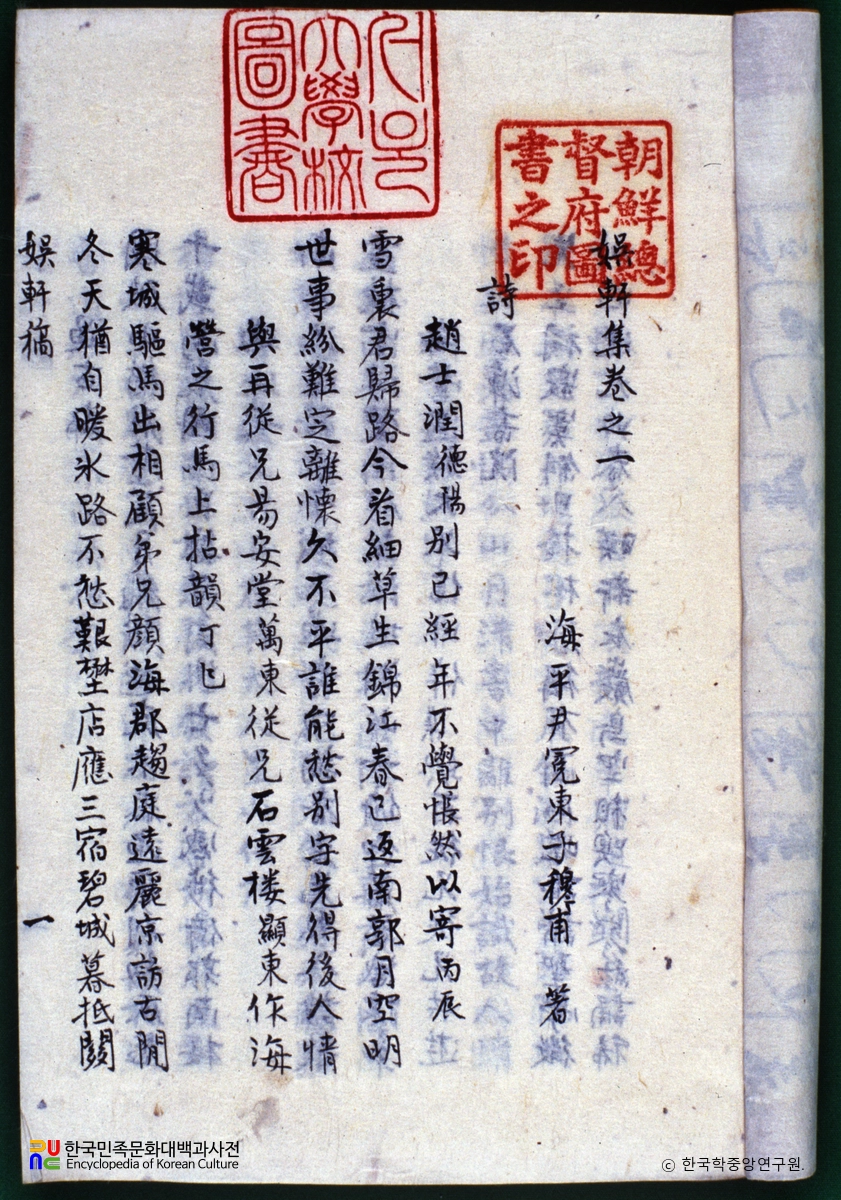 娛軒集卷之一
海平尹冕東子穆甫 著
詩
趙士潤德陽別已經年不覺悵然以寄丙辰
雪裏君歸路今看細草生錦江春已返南郭月空明
世事紛難定離懷久不平誰能愁別字先得後人情
與再從兄易安堂萬東從兄石雲樓顯東作海
營之行馬上拈韻丁巳
寒城驅馬出相顧弟兄顏海郡趨庭遠麗京訪古閒
冬天猶自暖氷路不愁艱埜店應三宿碧城暮抵關
娛軒稿
一
朝鮮總
督府圖
書之印
大學校
圖書
한국민족문화대백과사전
Encyclopedia of Korean Culture
ⓒ 한국학중앙연구원.